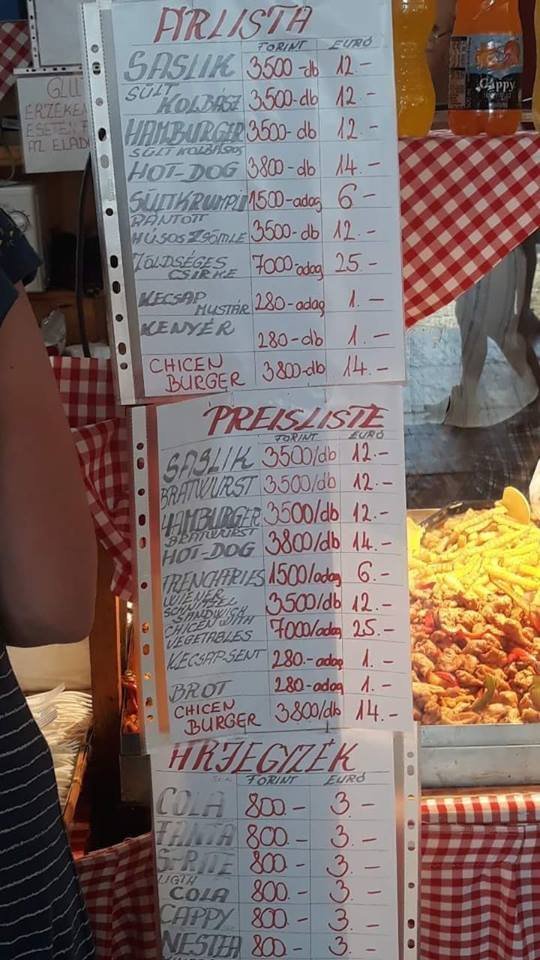 ÁRLISTA
FORINT EURÓ
SASLIK 3500-db 12.-
SÜLT KOLBÁSZ 3500-db 12.-
HAMBURGER 3500-db 12.-
SÜLT KOLBÁSOS HOT-DOG 3800-db 14.-
SÜLTKRUMPLI 1500-adag 6-
RÁNTOTT HÚSOS ZSÖMLE 3500-db 12.-
ZÖLDSÉGES CSIRKE 7000-adag 25.-
KECSAP MUSTÁR 280-adag 1.-
KENYÉR 280-db 1.-
CHICEN BURGER 3800-db 14.-
PREISLISTE
FORINT EURÓ
SASLIK 3500/db 12.-
BRATWURST 3500/db 12.-
HAMBURGER 3500/db 12.-
BRATWURST HOT-DOG 3800/db 14.-
TRENCHFRIES 1500/adag 6.-
WIENER SCHNITZEL SANDWICH 3500/db 12.-
CHICEN WITH VEGETABLES 7000/adag 25.-
KECSAP SENT 280.-adag 1.-
BROT 280-adag 1.-
CHICEN BURGER 3800/db 14.-
ÁRJEGYZÉK
FORINT EURÓ
COLA 800.- 3.-
FANTA 800.- 3.-
SPRITE 800.- 3.-
LIGTH COLA 800.- 3.-
CAPPY 800.- 3.-
NESTEA 800- 3.-
GLU
ÉRZÉKEN
ESETÉN
AZ ELAD
Cappy